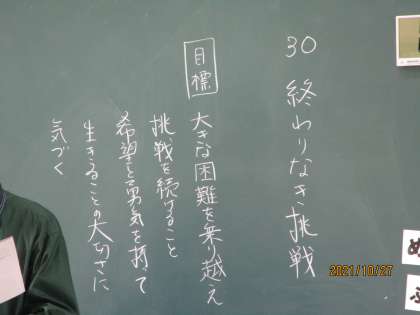 30 終わりなき挑戦
目標
大きな困難を乗り越え
挑戦を続けること
希望と勇気を持って
生きることの大切さに
気づく
2021/10/27
め
ぶ